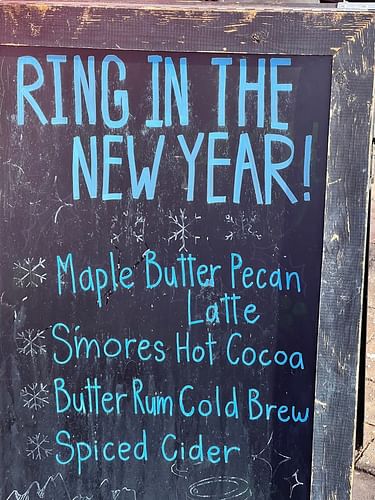 RING IN THE
NEW YEAR!
Maple Butter Pecan
Latte
S'mores Hot Cocoa
Butter Rum Cold Brew
Spiced Cider